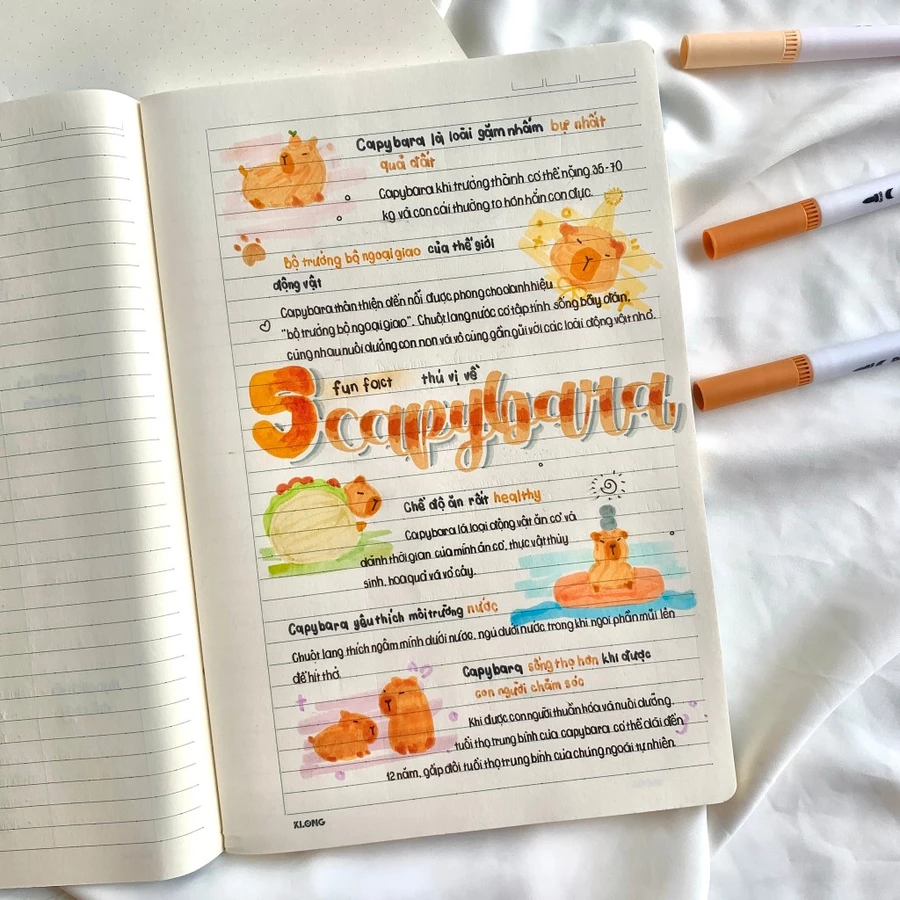 Capybara là loài gặm nhấm bự nhất
quả đất
Capybara khi trưởng thành có thể nặng 35-70
kg và con cái thường to hơn hẳn con đực.
Bộ trưởng bộ ngoại giao của thế giới
động vật
Capybara thân thiện đến nỗi được phong cho danh hiệu
"bộ trưởng bộ ngoại giao". Chuột lang nước có tập tính sống bầy đàn,
cùng nhau nuôi dưỡng con non và vô cùng gần gũi với các loài động vật nhỏ.
5 fun fact thú vị về
capybara
Chế độ ăn rất healthy
Capybara là loại động vật ăn cỏ và
dành thời gian của mình ăn cỏ, thực vật thủy
sinh, hoa quả và vỏ cây.
Capybara yêu thích môi trường nước
Chuột lang thích ngâm mình dưới nước, ngủ dưới nước trong khi ngoi phần mũi lên
để hít thở.
Capybara sống thọ hơn khi được
con người chăm sóc
Khi được con người thuần hóa và nuôi dưỡng,
tuổi thọ trung bình của capybara có thể dài đến
12 năm, gấp đôi tuổi thọ trung bình của chúng ngoài tự nhiên.
KLONG